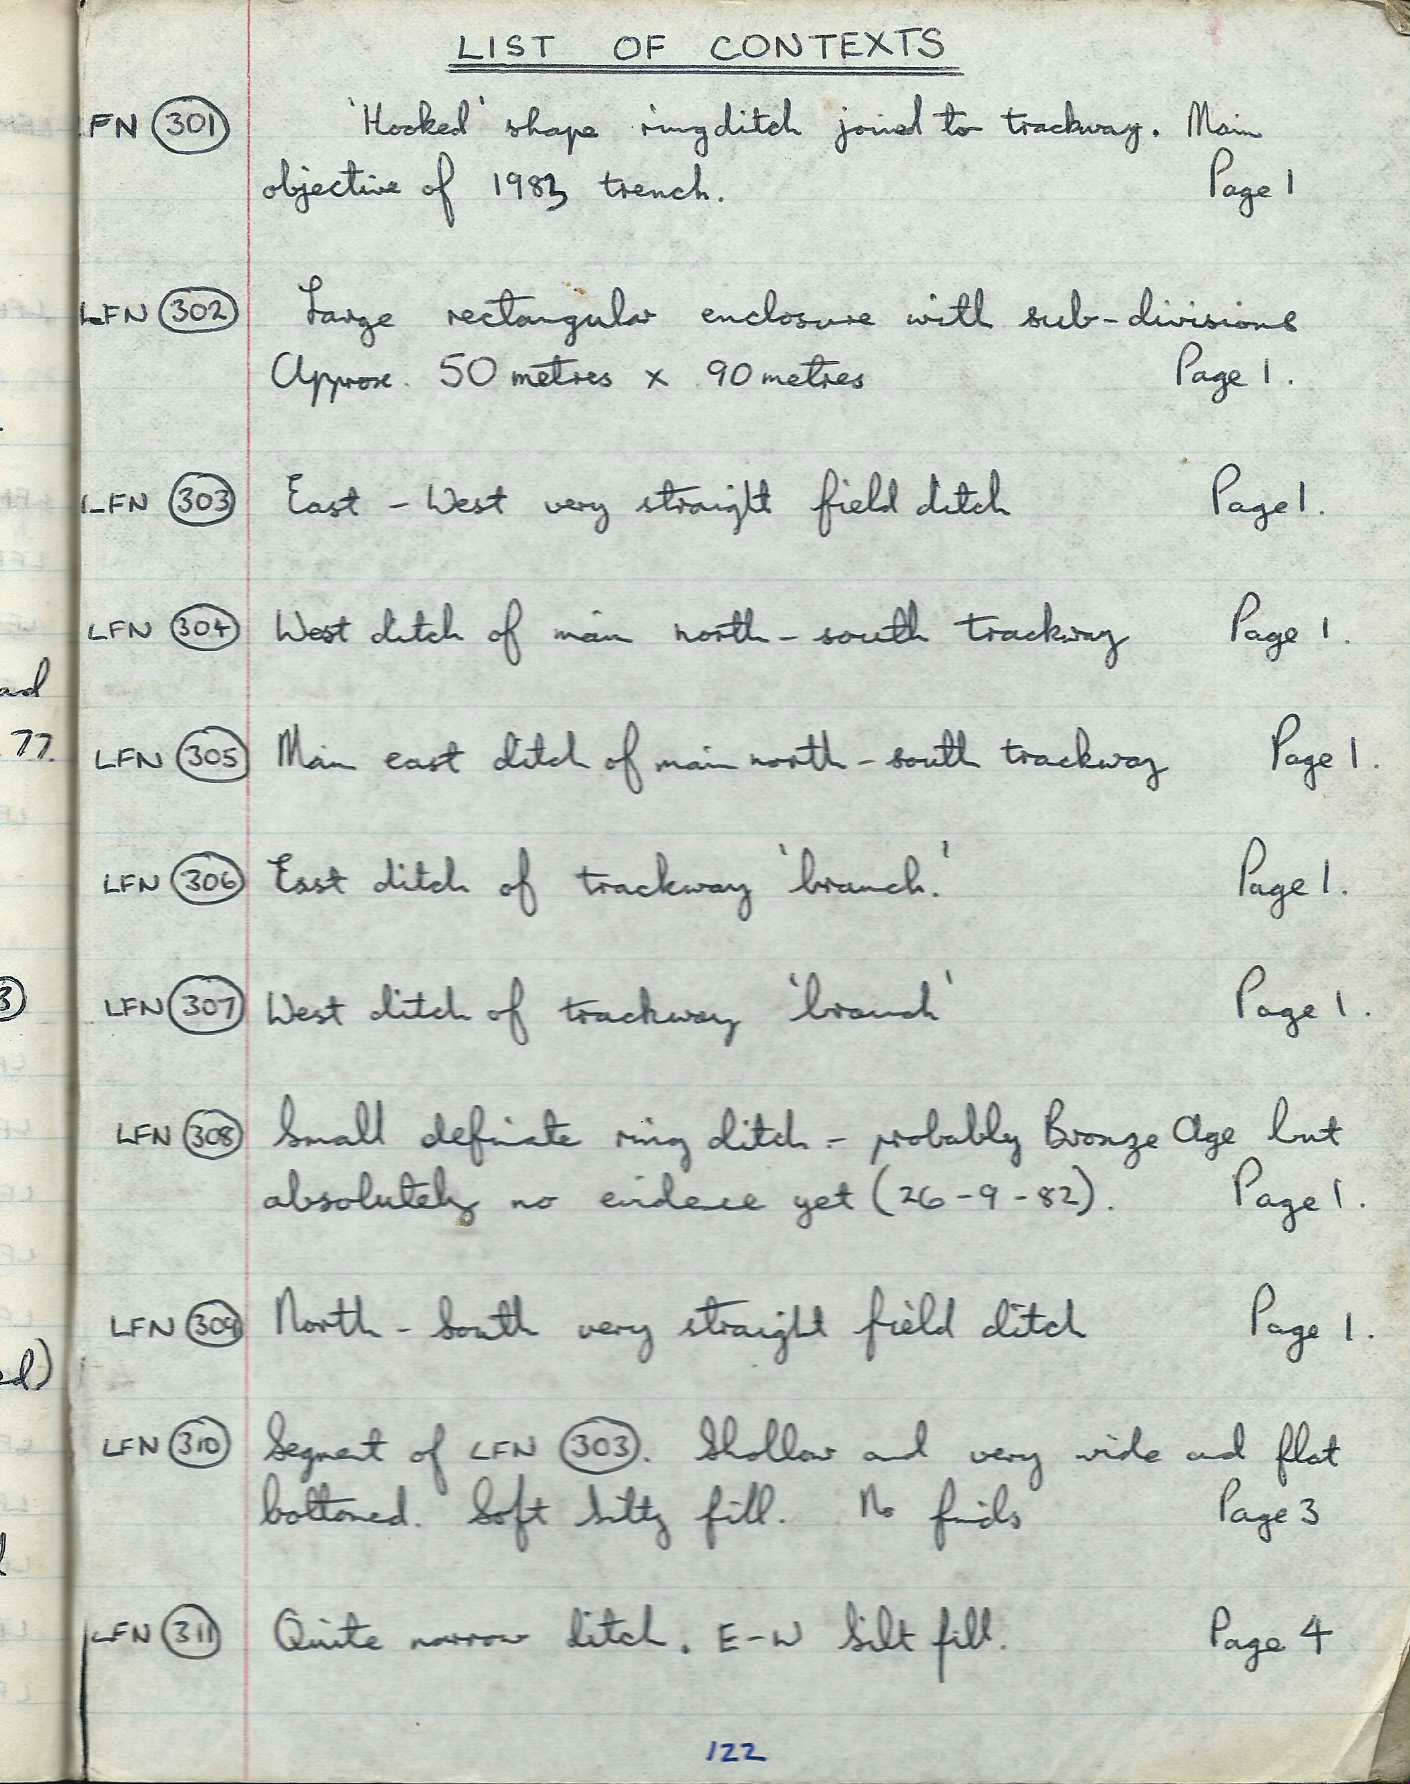 LIST OF CONTEXTS
FN 301 'Hooked' shape ring ditch joined to trackway. Main
objective of 1983 trench. Page 1
LFN 302 Large rectangular enclosure with sub-divisions
Approx. 50 metres x 90 metres Page 1.
LFN 303 East - West very straight field ditch Page 1.
LFN 304 West ditch of main north - south trackway Page 1.
ad
77.
LFN 305 Main east ditch of main north - south trackway Page 1.
LFN 306 East ditch of trackway 'branch.' Page 1.
3
LFN 307 West ditch of trackway 'branch' Page 1.
LFN 308 Small definate ring ditch - probably Bronze Age but
absolutely no evidence yet (26-9-82). Page 1.
LFN 309 North - South very straight field ditch Page 1.
ed)
LFN 310 Segment of LFN 303. Shallow and very wide and flat
bottomed. Soft silty fill. No finds Page 3
LFN 311 Quite narrow ditch. E-W Silt fill. Page 4
122